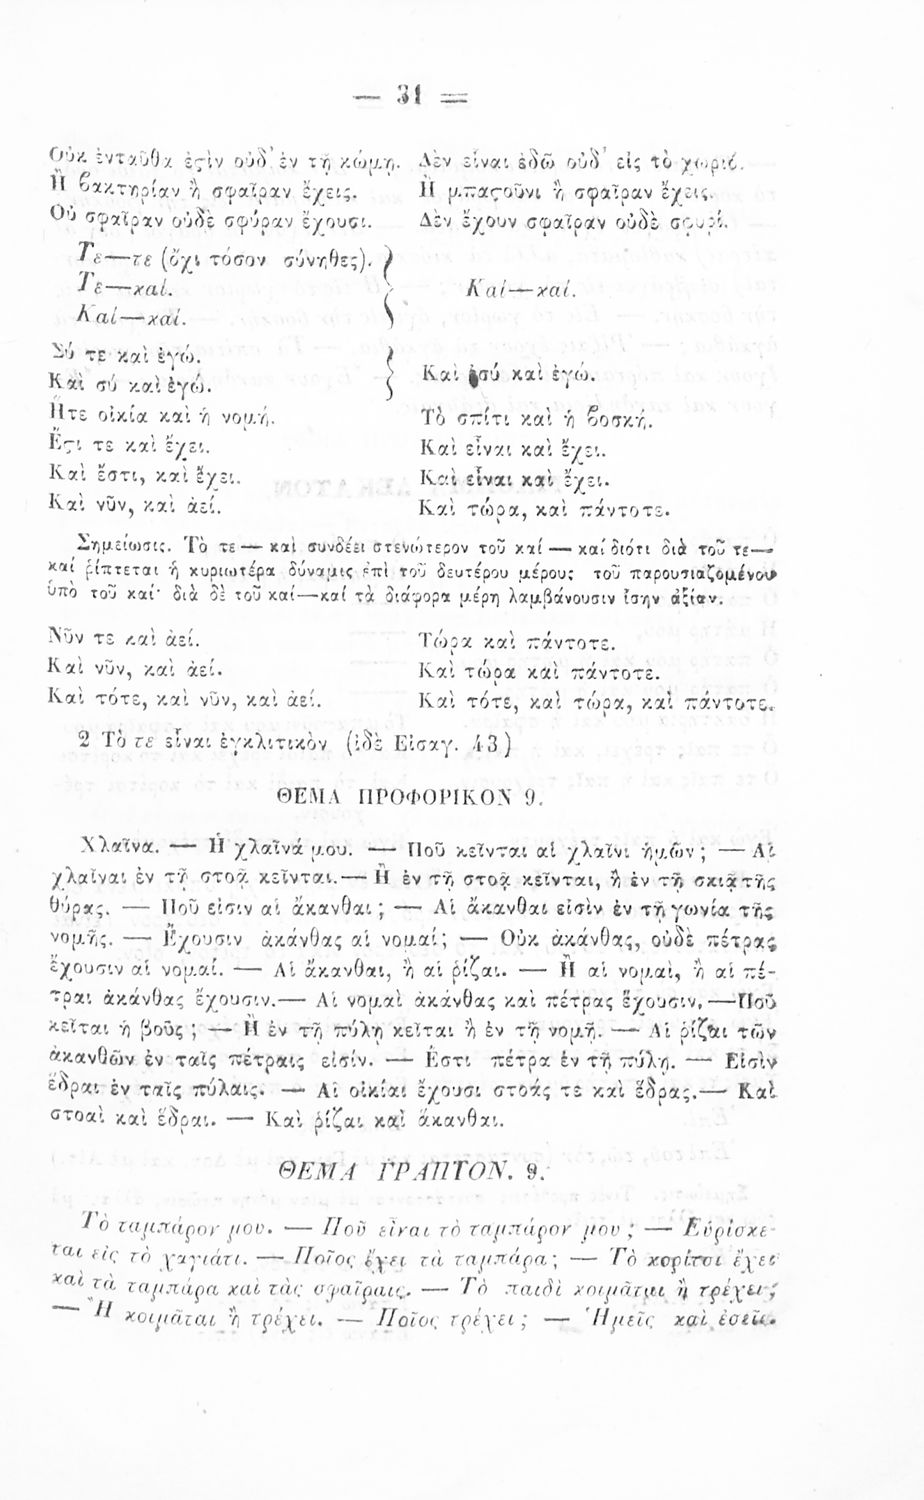 — 31 —
Οὐκ ἐνταῦθα ἐςὶν οὐδ' ἐν τῇ κώμῃ. Δὲν εἶναι ἐδῶ οὐδ' εἰς τὸ χωριό.
Ἢ βακτηρίαν ἢ σφαῖραν ἔχεις. Ἢ μπαςοῦνι ἢ σφαῖραν ἔχεις.
Οὐ σφαῖραν οὐδὲ σφύραν ἔχουσι. Δὲν ἔχουν σφαῖραν οὐδὲ σφυρί.
Τε—τε (ὄχι τόσον σύνηθες).
Τε—καί. Καί—καί.
Καί—καί.
Σύ τε καὶ ἐγώ.
Καὶ σύ καὶ ἐγώ. Καὶ ἐσύ καὶ ἐγώ.
Ἥτε οἰκία καὶ ἡ νομή. Τὸ σπίτι καὶ ἡ βοσκή.
Ἔςι τε καὶ ἔχει. Καὶ εἶναι καὶ ἔχει.
Καὶ ἔστι, καὶ ἔχει. Καὶ εἶναι καὶ ἔχει.
Καὶ νῦν, καὶ ἀεί. Καὶ τώρα, καὶ πάντοτε.
Σημείωσις. Τὸ τε — καὶ συνδέει στενώτερον τοῦ καί — καί διότι διὰ τοῦ τε—
καί ῥίπτεται ἡ κυριωτέρα δύναμις ἐπὶ τοῦ δευτέρου μέρους τοῦ παρουσιαζομένου
ὑπὸ τοῦ καί· διὰ δὲ τοῦ καί—καί τὰ διάφορα μέρη λαμβάνουσιν ἴσην ἀξίαν.
Νῦν τε καὶ ἀεί. Τώρα καὶ πάντοτε.
Καὶ νῦν, καὶ ἀεί. Καὶ τώρα καὶ πάντοτε.
Καὶ τότε, καὶ νῦν, καὶ ἀεί. Καὶ τότε, καὶ τώρα, καὶ πάντοτε.
2 Τὸ τε εἶναι ἐγκλιτικὸν (ἰδὲ Εἰσαγ. 43)
ΘΕΜΑ ΠΡΟΦΟΡΙΚΟΝ 9.
Χλαῖνα. — Ἡ χλαῖνά μου. — Ποῦ κεῖνται αἱ χλαῖνι ἡμῶν; — Αἱ
χλαῖναι ἐν τῇ στοᾷ κεῖνται.— Ἢ ἐν τῇ στοᾷ κεῖνται, ἢ ἐν τῇ σκιᾷ τῆς
θύρας. — Ποῦ εἰσιν αἱ ἄκανθαι; — Αἱ ἄκανθαι εἰσὶν ἐν τῇ γωνίᾳ τῆς
νομῆς. — Ἔχουσιν ἀκάνθας αἱ νομαί; — Οὐκ ἀκάνθας, οὐδὲ πέτρας
ἔχουσιν αἱ νομαί. — Αἱ ἄκανθαι, ἢ αἱ ῥίζαι. — Ἢ αἱ νομαὶ, ἢ αἱ πέ-
τραι ἀκάνθας ἔχουσιν.— Αἱ νομαὶ ἀκάνθας καὶ πέτρας ἔχουσιν.—Ποῦ
κεῖται ἡ βοῦς; — Ἢ ἐν τῇ πύλῃ κεῖται ἢ ἐν τῇ νομῇ. — Αἱ ῥίζαι τῶν
ἀκανθῶν ἐν ταῖς πέτραις εἰσίν. — Ἔστι πέτρα ἐν τῇ πύλῃ. — Εἰσὶν
ἕδραι ἐν ταῖς πύλαις. — Αἱ οἰκίαι ἔχουσι στοάς τε καὶ ἕδρας.— Καὶ
στοαὶ καὶ ἕδραι. — Καὶ ῥίζαι καὶ ἄκανθαι.
ΘΕΜΑ ΓΡΑΠΤΟΝ. 9.
Τὸ ταμπάρον μου. — Ποῦ εἶναι τὸ ταμπάρον μου; — Εὑρίσκε-
ται εἰς τὸ χαγιάτι. — Ποῖος ἔχει τὰ ταμπάρα; — Τὸ κορίτσι ἔχει
καὶ τὰ ταμπάρα καὶ τὰς σφαῖραις. — Τὸ παιδὶ κοιμᾶται ἢ τρέχει;
— Ἢ κοιμᾶται ἢ τρέχει. — Ποῖος τρέχει; — Ἡμεῖς καὶ ἐσεῖς.